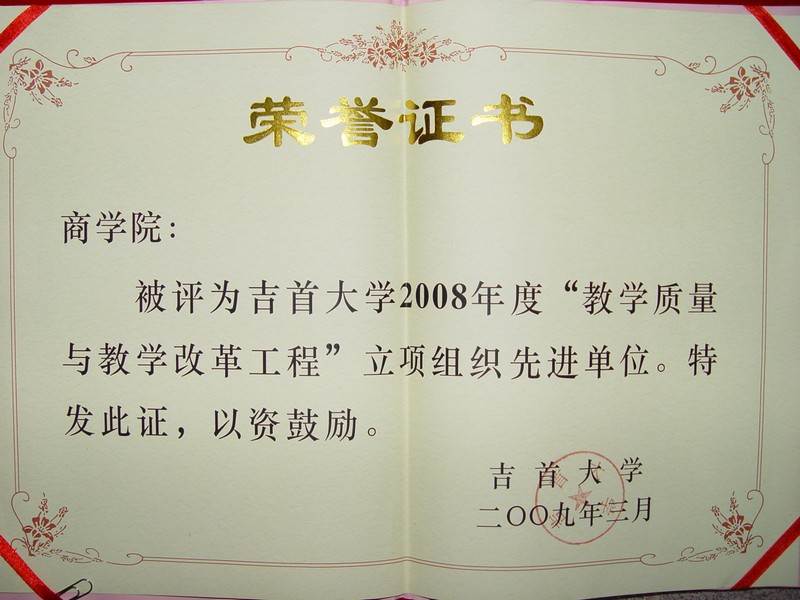 荣誉证书
商学院：
被评为吉首大学2008年度“教学质量
与教学改革工程”立项组织先进单位。特
发此证，以资鼓励。
吉首大学
二〇〇九年三月